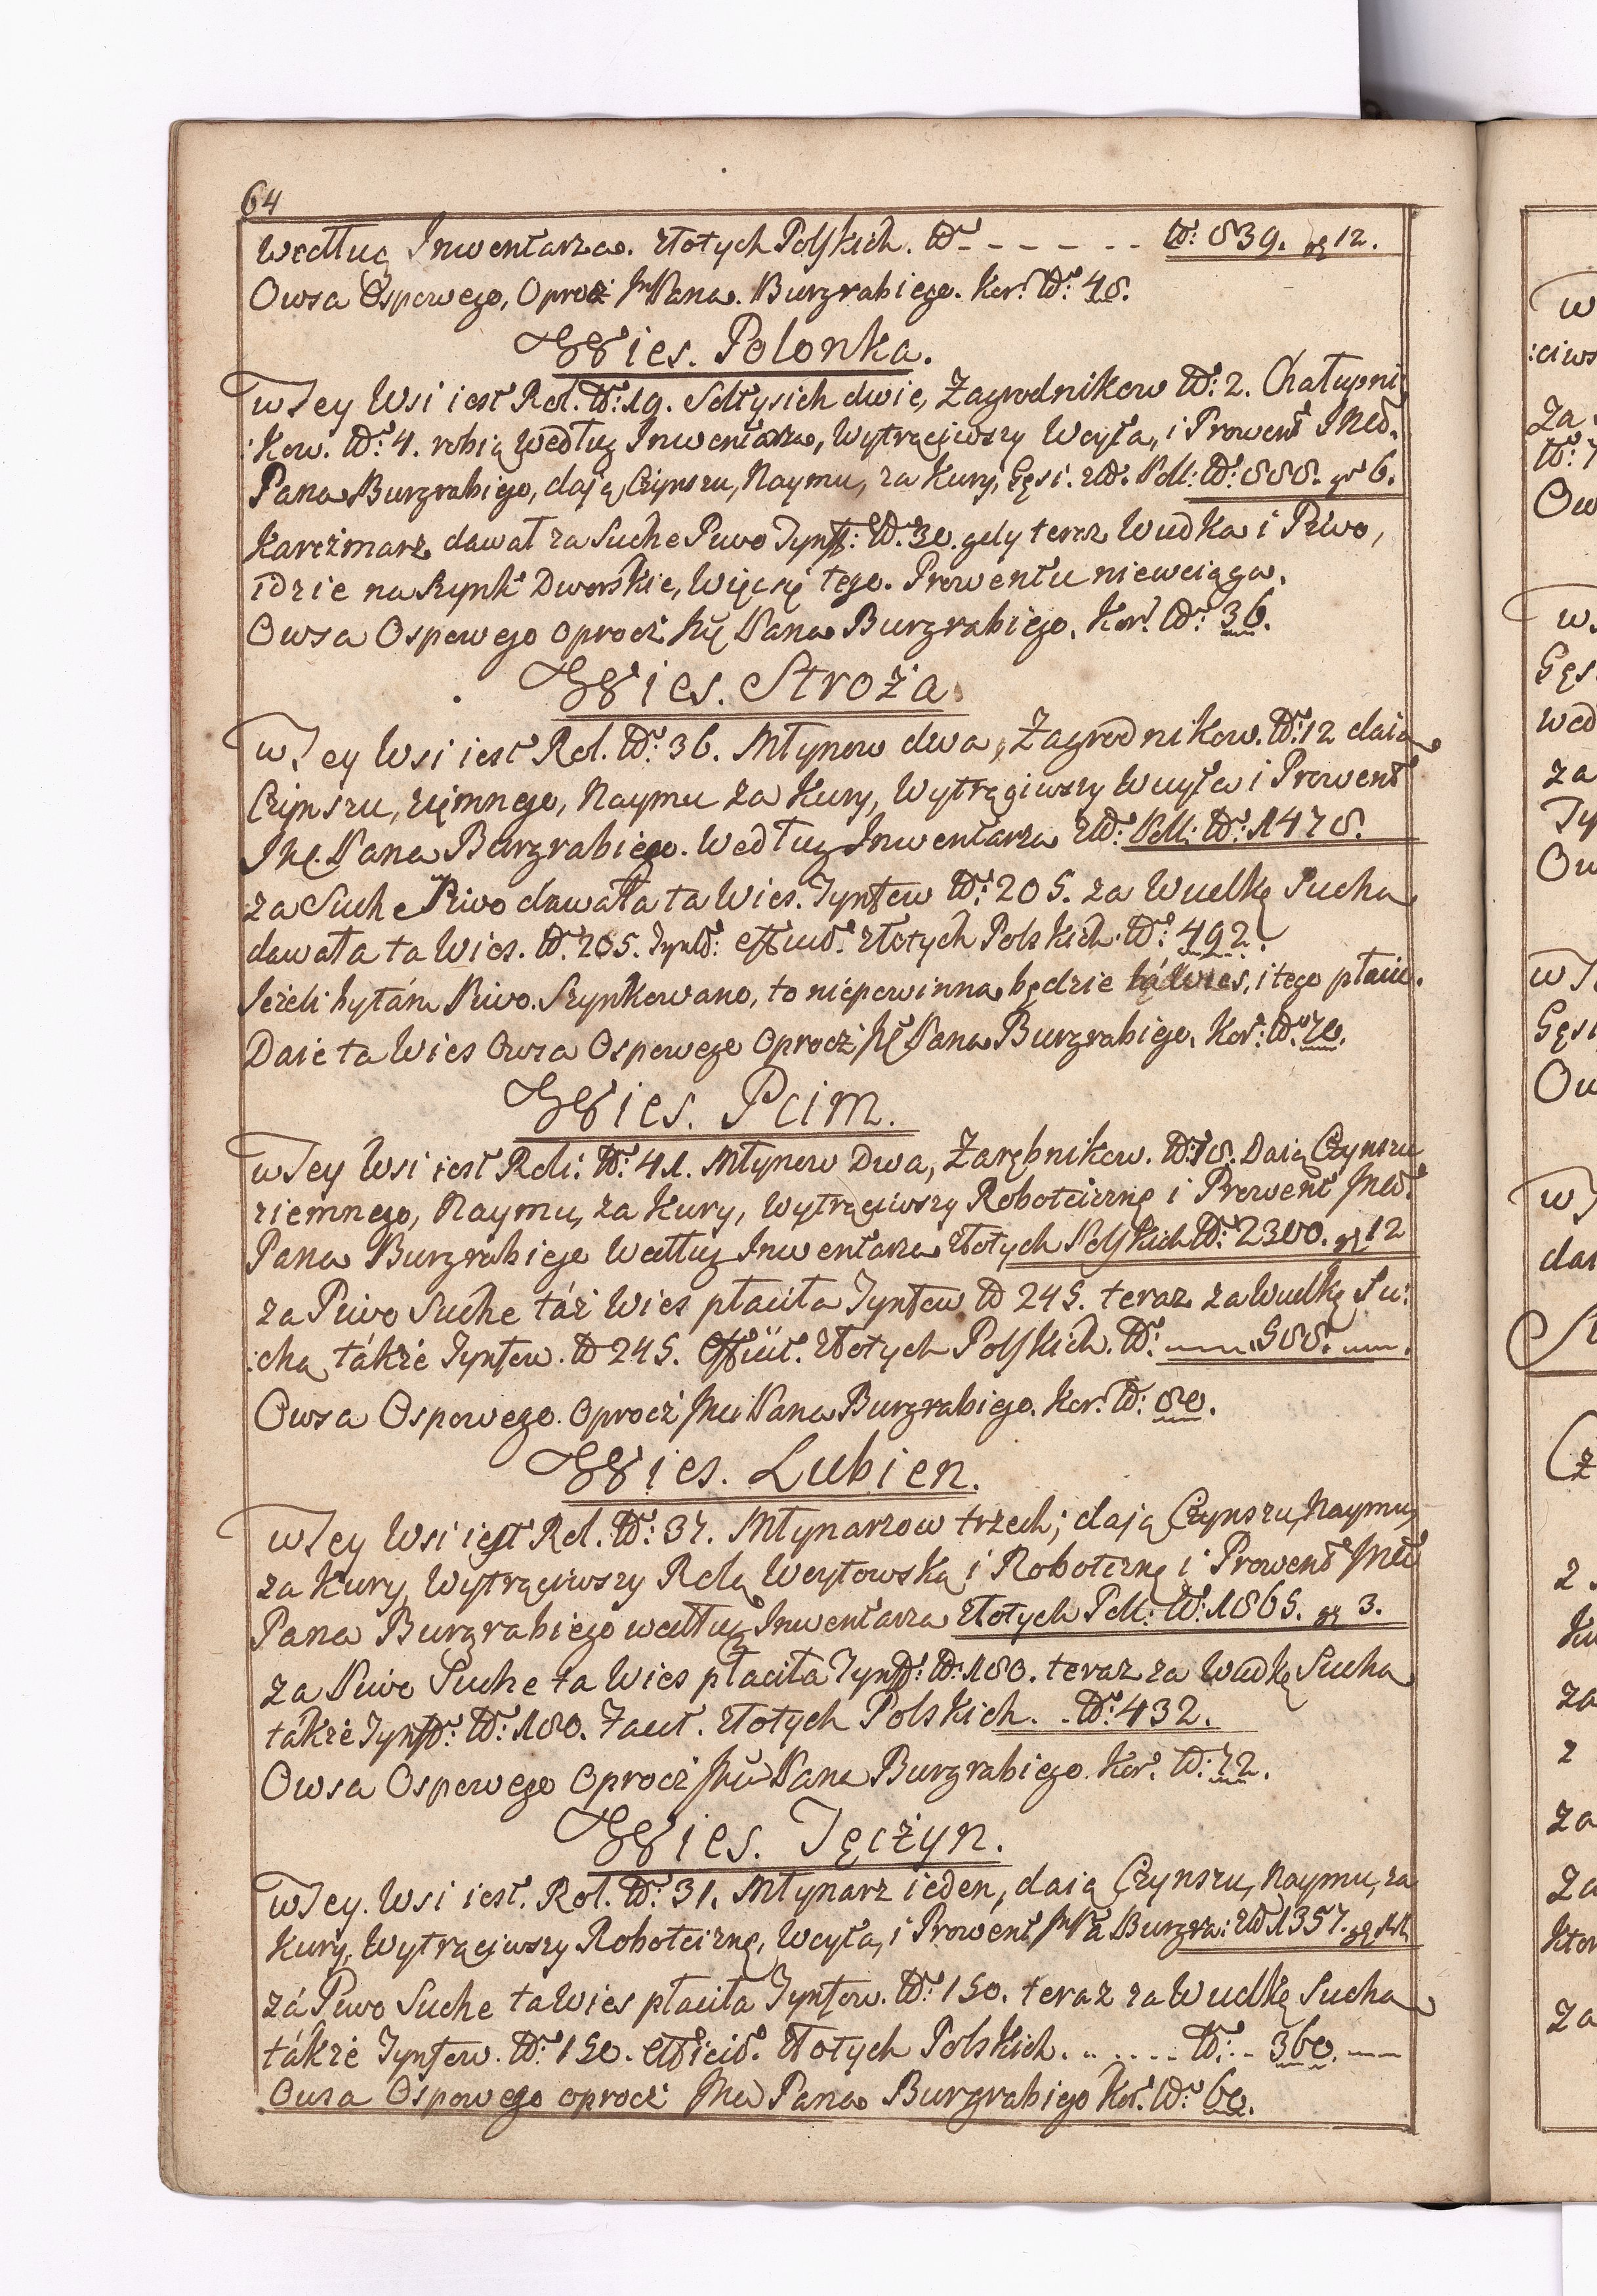 64
według Inwentarza. złotych Polskich. No - - - - - No: 839. gr 12.
Owsa Ospowego, Oprocz Jm Pana. Burgrabiego. Kor: No: 48.
Wies. Polonka.
w Tey Wsi iest Rol. No: 19. Sołtysich dwie, Zagrodnikow No: 2. Chałupni
:kow. No: 4. robią według Inwentarza, Wytrąciwszy Woyta, i Prowent
Pana Burgrabiego, dają Czynszu, Naymu, za Kury, Gęsi. Zło. Poll: No: 888. gr 6.
Karczmarz dawał za Suche Piwo Tynff: No. 30. gdy teraz Wudka i Piwo,
idzie na Szynk Dworskie, Więcey tego. Prowentu niewciąga.
Owsa Ospowego oprocz Pana Burgrabiego. Kor: No: 36.
Wies. Stroża
w Tey Wsi iest Rol. No: 36. Młynow dwa, Zagrodnikow. No: 12 daią
Czynszu, ziemnego, Naymu za Kury, Wytrągiwszy Wuyta i Prowent
Pana Burgrabiego. Według Inwentarza Zło: Poll: No: 1478.
za Suche Piwo dawała ta Wies. Tynfow No: 205. za Wudkę Sucha
dawała ta Wies. No: 205. Tynfo: złotych Polskich. No: 492.
Jeżeli bytám Piwo. Szynkowano, to niepowinna będzie tá Wies, i tego płacic.
Daie ta Wies Owsa Ospowego Oprocz Pana Burgrabiego. Kor: No: 70.
Wies. Pcim.
w Tey Wsi iest Roli: No: 41. Młynow Dwa, Zarębnikow. No: 18. Daią Czynszu
ziemnego, Naymu, za Kury, Wytrąciwszy Robotciznę i Prowent
Pana Burgrabiego Według Inwentarza złotych Polskich No: 2300. gr 12
za Piwo Suche táż Wies płaciła Tynfow No 245. teraz za Wudkę Su:
:cha tákże Tynfow. No 245. złotych Polskich. No: 588.
Owsa Ospowego. oprocz Pana Burgrabiego. Kor: No: 80.
Wies. Lubien.
w Tey Wsi iest Rol. No: 37. Młynarzow trzech; dają Czynszu, Naymu,
za Kury, Wytrąciwszy Rolą Woytowską i Robotcznę i Prowent
Pana Burgrabiego według Inwentarza złotych Poll: No: 1865. gr 3.
za Piwo Suche ta Wies płaciła Tynff: No: 180. teraz za Wudkę Sucha
tákże Tynff: No: 180. złotych Polskich. . No: 432.
Owsa Ospowego oprocz Pana Burgrabiego. Kor: No: 72.
Wies. Tęczyn.
w Tey. Wsi iest. Rol. No: 31. Młynarz ieden, daią Czynszu, Naymu, za
Kury, Wytrąciwszy Robotciznę, Woyta, i Prowent Burgra: Zło 1357. gr 11
zá Piwo Suche ta Wies płaciła Tynfow. No: 150. teraz za Wudkę Sucha
tákże Tynfow. No: 150. złotych Polskich. . . . . . . No: - 360.
Owsa Ospowego oprocz Pana Burgrabiego Kor: No: 60.